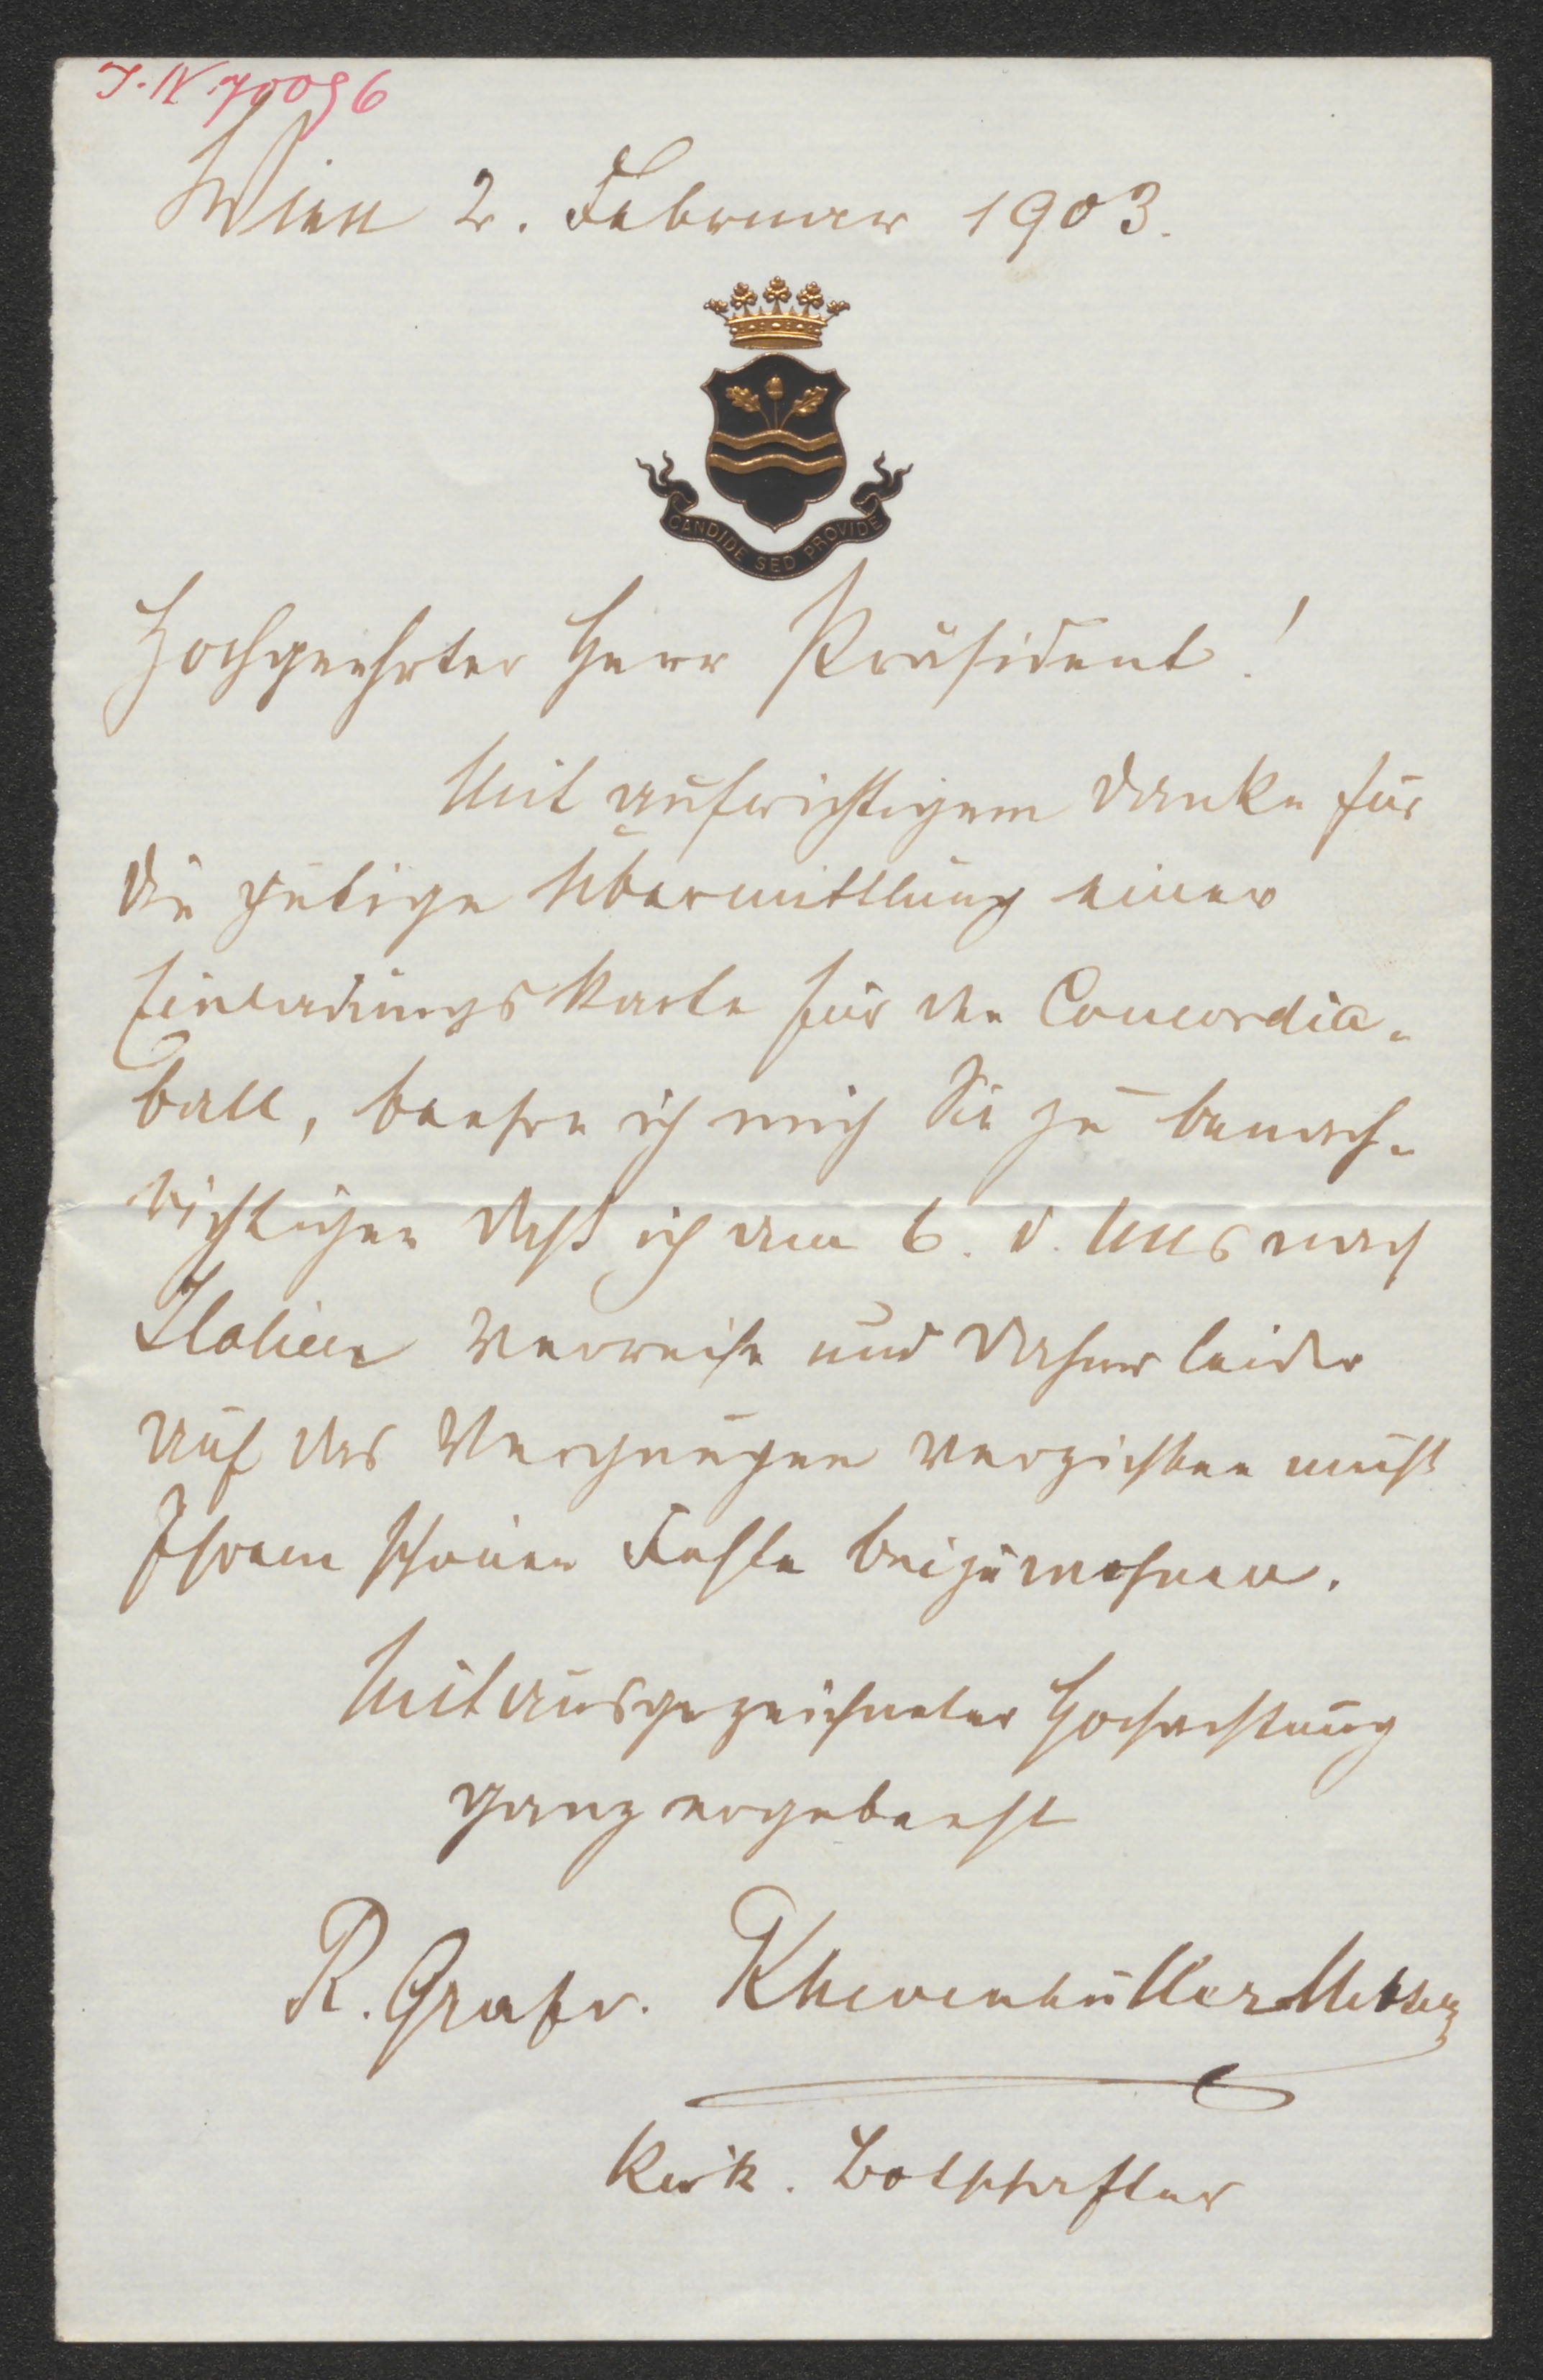 J. N. 70096
Wien 2. Februar 1903.
CANDIDE SED PROVIDE
Hochgeehrter Herr Präsident!
Mit aufrichtigem Danke für
die gütige Übermittlung einer
Einladungskarte für den Concordia-
ball, beehre ich mich Sie zu benach-
richtigen daß ich am 6. d. Mts nach
Italien verreise und daher leider
auf das Vergnügen verzichten muß
Ihrem schönen Feste beizuwohnen.
Mit ausgezeichneter Hochachtung
ganz ergebenst
R. Graf v. Khevenhüller Metsch
KuK. Botschafter